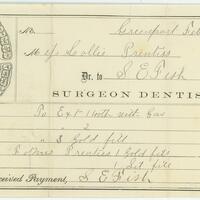 No. Greenport Feb
M iss Lottie Prentiss
Dr. to S. E. Fish
SURGEON DENTIST
To Ext 1 tooth with Gas
" " 2 "
" 3 Gold fill
Prentiss 1 Gold fill
1 fill
Received Payment, S E Fish